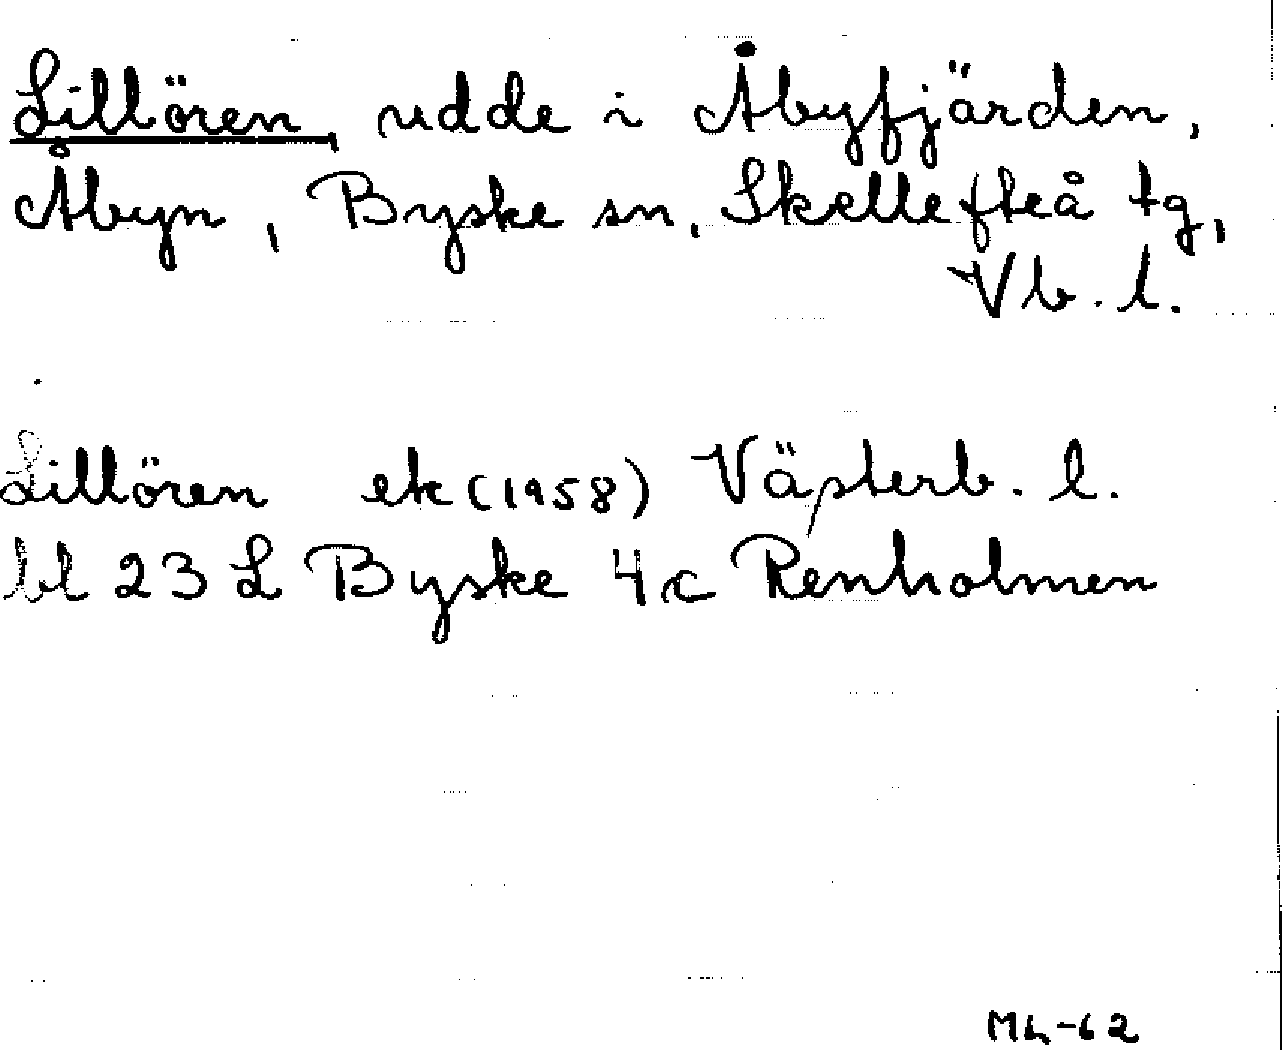 Lillören, udde i Åbyfjärden,
Åbyn, Byske sn, Skellefteå tg,
Vb. l.
Lillören ek (1958) Västerb. l.
bl 23 L Byske 4c Renholmen
ML-62